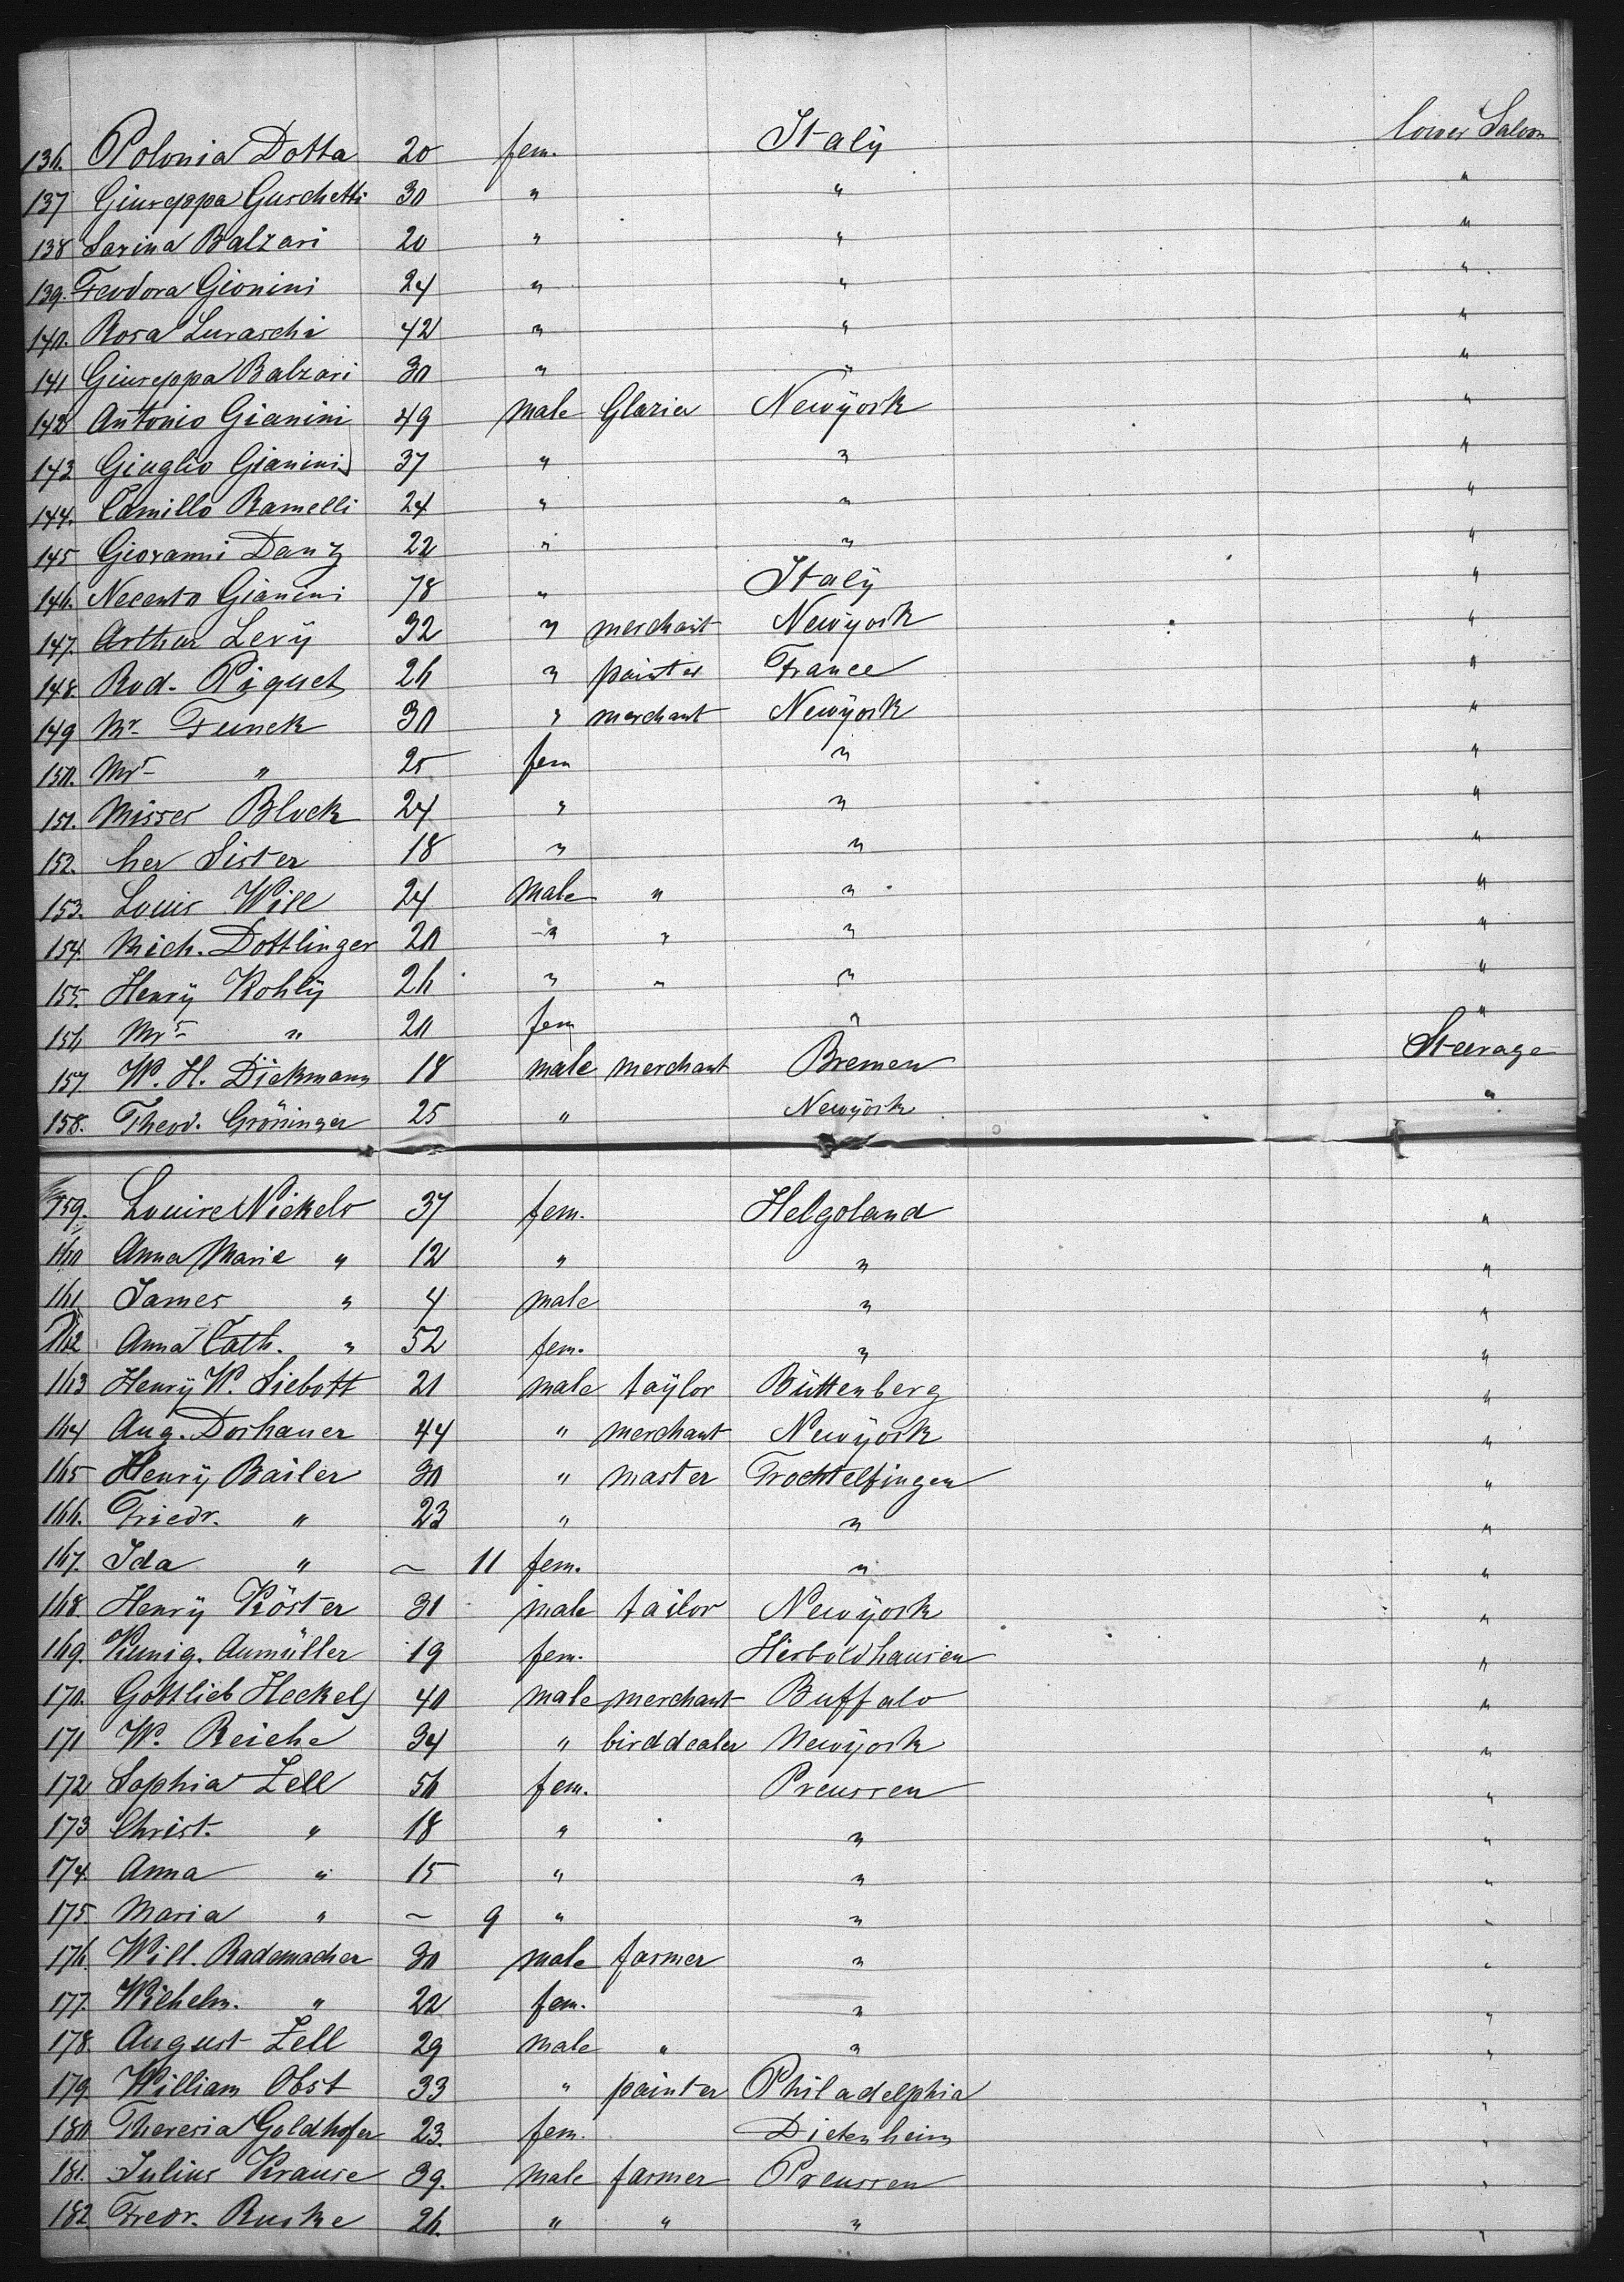 136. Polonia Dotta 20 fem. Italy lower Saloon
137 Giuseppa Guschetti 30 " " "
138 Sarina Balzari 20 " " "
139. Teodora Gionini 24 " " "
140. Rosa Luraschi 42 " " "
141 Giuseppa Balzari 30 " " "
142 Antonio Gianini 49 male Glazier Newyork "
143 Giuglio Gianini 37 " " "
144. Camillo Ramelli 24 " " "
145 Giovanni Danz 22 " " "
146. Gianini 78 " Italy "
147. Arthur Levy 32 " merchant Newyork "
148. Rud. Piquet 26 " painter France "
149 Mr. Funck 30 " merchant Newyork "
150. Mrs " 25 fem " "
151. Misses Block 24 " " "
152. her Sister 18 " " "
153. Louis Will 24 Male " " "
154. Mich. Dottlinger 20 " " " "
155. Henry Kohly 26 " " " "
156 Mrs " 20 fem " "
157 W. H. Diekmann 18 male merchant Bremen Steerage
158. Theod. Gröninger 25 " Newyork "
159. Louise Nickels 37 fem. Helgoland "
160 Anna Marie " 12 " " "
161 James " 4 male " "
162 Anna Cath. " 52 fem. " "
163 Henry W. Siebott 21 male taylor Büttenberg "
164 Aug. Dorhauer 44 " merchant Newyork "
165 Henry Bailer 30 " master Trochtelfingen "
166. Friedr. " 23 " " "
167. Ida " ~ 11 fem. " "
168. Henry Köster 31 male tailor Newyork "
169. Kunig. Aumüller 19 fem. Herboldhausen "
170. Gottlieb Heckel 40 male merchant Buffalo "
171 W. Reiche 34 " birddealer Newyork "
172 Sophia Zell 56 fem. Preussen "
173 Christ. " 18 " " "
174. Anna " 15 " " "
175. Maria " ~ 9 " " "
176. Will. Rademacher 30 male farmer " "
177. Wilhelm. " 22 fem. " "
178. August Zell 29 male " " "
179. William Obst 33 " painter Philadelphia "
180 Theresia Goldhofer 23. fem. Dietenheim "
181. Julius Krause 39. male farmer Preussen "
182. Fredr. Ruske 26. " " " "